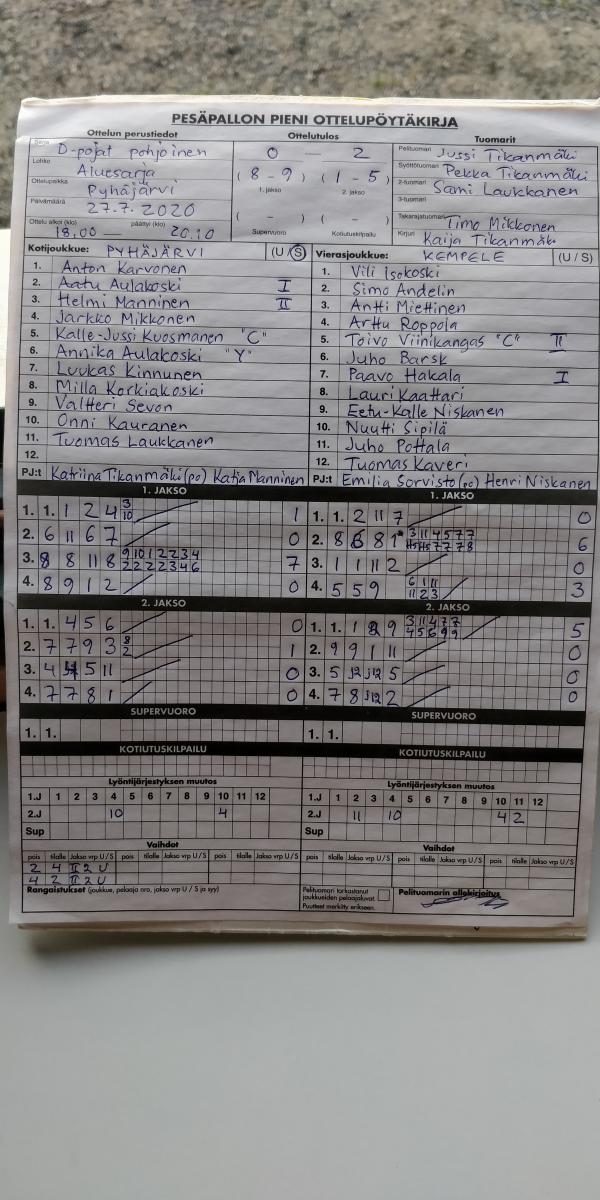 PESÄPALLON PIENI OTTELUPÖYTÄKIRJA
Ottelun perustiedot Ottelutulos Tuomarit
Sarja D-pojat pohjoinen 0 — 2 Pelituomari Jussi Tikanmäki
Lohko Aluesarja (8 - 9) (1 - 5) Syöttötuomari Pekka Tikanmäki
Ottelupaikka Pyhäjärvi 1. jakso 2. jakso 2-tuomari Sami Laukkanen
Päivämäärä 27.7. 2020 ( - ) ( - ) 3-tuomari
Takarajatuomari Timo Mikkonen
Ottelu alkoi (klo) 18.00 — päättyi (klo) 20.10 Supervuoro Kotiutuskilpailu Kirjuri Kaija Tikanmäk.
Kotijoukkue: PYHÄJÄRVI (U / S) Vierasjoukkue: KEMPELE (U / S)
1. Anton Karvonen 1. Vili Isokoski
2. Aatu Aulakoski I 2. Simo Andelin
3. Helmi Manninen II 3. Antti Miettinen
4. Jarkko Mikkonen 4. Arttu Roppola
5. Kalle-Jussi Kuosmanen "C" 5. Toivo Viinikangas "C" II
6. Annika Aulakoski "Y" 6. Juho Barsk
7. Luukas Kinnunen 7. Paavo Hakala I
8. Milla Korkiakoski 8. Lauri Kaattari
9. Valtteri Sevon 9. Eetu-Kalle Niskanen
10. Onni Kauranen 10. Nuutti Sipilä
11. Tuomas Laukkanen 11. Juho Pottala
12. 12. Tuomas Kaveri
PJ:t Katriina Tikanmäki (po) Katja Manninen PJ:t Emilia Sorvisto (po) Henri Niskanen
1. JAKSO 1. JAKSO
1. 1. 1 2 4 3 10 1 1. 1. 2 11 7 0
2. 6 11 6 7 0 2. 8 8 1 3 11 4 5 7 7 7 7 7 8 6
3. 8 8 11 8 9 10 1 2 2 3 4 2 2 2 2 3 4 6 7 3. 1 1 11 2 0
4. 8 9 1 2 0 4. 5 5 9 6 1 11 11 2 3 3
2. JAKSO 2. JAKSO
1. 1. 4 5 6 0 1. 1. 1 9 3 11 4 7 7 4 5 6 9 9 5
2. 7 7 9 3 8 2 1 2. 9 9 1 11 0
3. 4 5 11 0 3. 5 J12 J12 5 0
4. 7 7 8 1 0 4. 7 8 J12 2 0
SUPERVUORO SUPERVUORO
1. 1. 1. 1.
KOTIUTUSKILPAILU KOTIUTUSKILPAILU
Lyöntijärjestyksen muutos Lyöntijärjestyksen muutos
1.J 1 2 3 4 5 6 7 8 9 10 11 12 1.J 1 2 3 4 5 6 7 8 9 10 11 12
2.J 10 4 2.J 11 10 4 2
Sup Sup
Vaihdot Vaihdot
pois tilalle Jakso vrp U/S pois tilalle Jakso vrp U/S pois tilalle Jakso vrp U/S pois tilalle Jakso vrp U/S pois tilalle Jakso vrp U/S pois tilalle Jakso vrp U/S
2 4 II 2 U
4 2 II 2 U
Rangaistukset (joukkue, pelaaja nro, jakso vrp U / S ja syy) Pelituomari tarkastanut joukkueiden pelaajaluvat. Pelituomarin allekirjoitus
Puutteet merkitty erikseen.